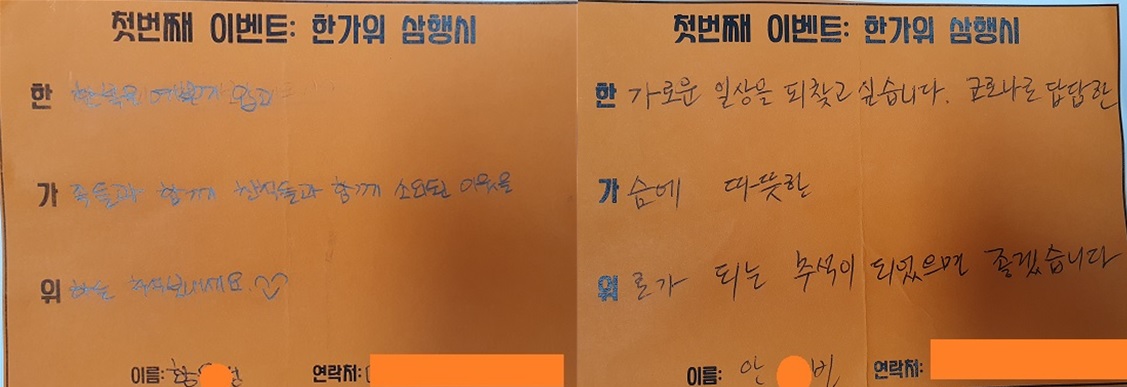 첫번째 이벤트: 한가위 삼행시
한 한복을 예쁘게 입고
가 족들과 함께 친척들과 함께 소외된 이웃을
위 하는 추석보내세요.♡
이름: 황 연락처:
첫번째 이벤트: 한가위 삼행시
한 가로운 일상을 되찾고 싶습니다. 코로나로 답답한
가 슴에 따뜻한
위 로가 되는 추석이 되었으면 좋겠습니다
이름: 안 빈 연락처: